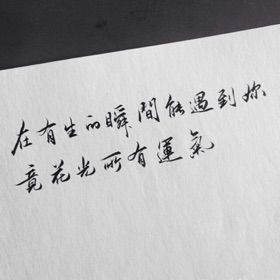 在有生的瞬間能遇到妳
竟花光所有運氣